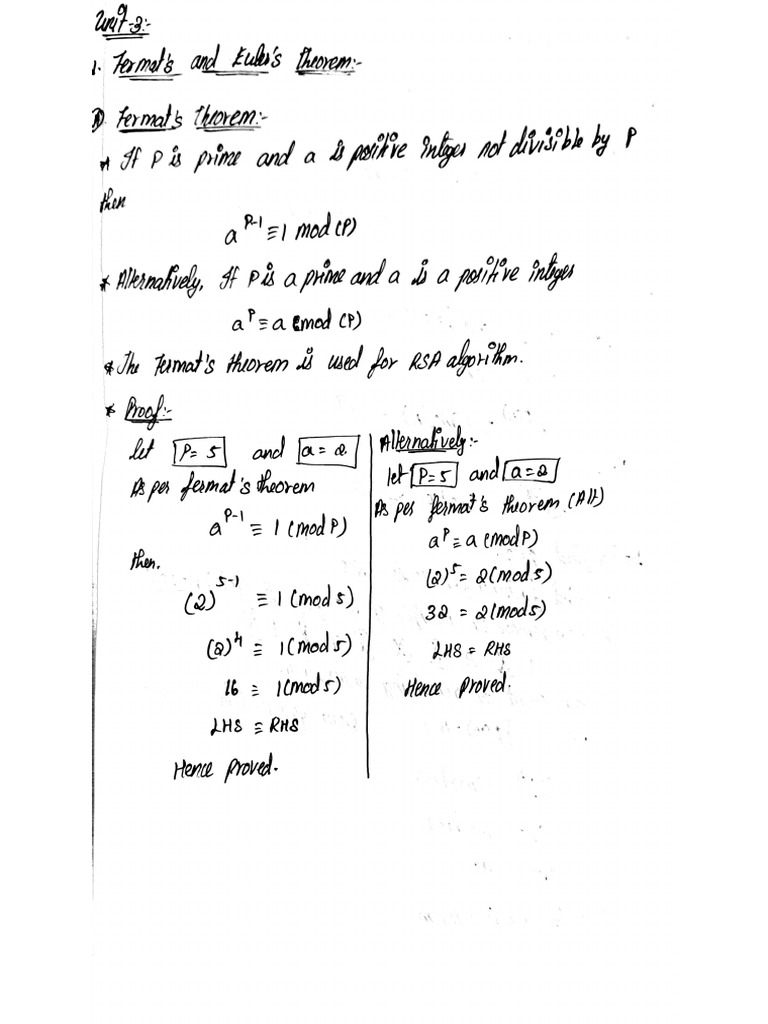 Unit-3:-
1. Fermat's and Euler's Theorem:-
1) Fermat's Theorem:-
* If P is prime and a is positive integer not divisible by P
then
a^{P-1} ≡ 1 mod (P)
* Alternatively, If P is a prime and a is a positive integer
a^P ≡ a (mod (P)
* The Fermat's theorem is used for RSA algorithm.
* Proof:-
let P = 5 and a = 2.
As per fermat's theorem
a^{P-1} ≡ 1 (mod P)
then.
(2)^{5-1} ≡ 1 (mod 5)
(2)^4 ≡ 1 (mod 5)
16 ≡ 1 (mod 5)
LHS ≡ RHS
Hence Proved.
Alternatively:-
let P = 5 and a = 2
As per fermat's theorem (Alt)
a^P ≡ a (mod P)
(2)^5 = 2 (mod 5)
32 = 2 (mod 5)
LHS = RHS
Hence Proved.